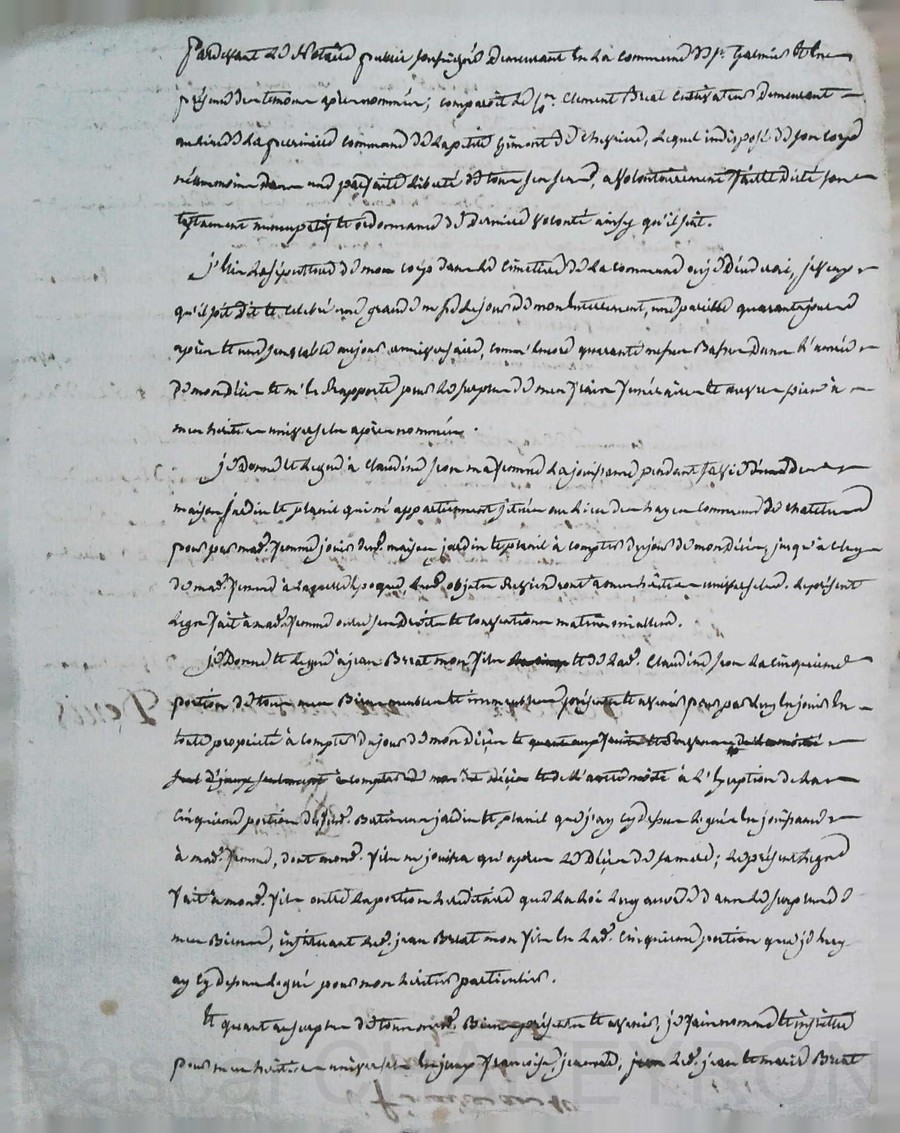 Pardevant le Notaire public soussigné Demeurant en la commune de St. Galmier et en
présence des témoins après nommés; comparoit le Sr. Clement Breat Cultivateur Demeurant
au lieu de la commune de la petite Gimont de Chevrier, lequel indisposé de son corps
néanmoins dans une parfaite liberté de tous ses sens, a volontairement fait et dicté son
testament nuncupatif et ordonnance de Derniere volonté ainsy qu'il suit.
J'elis la sépulture de mon corps dans le cimetiere de la commune ou je Décederai, je veux
qu'il soit dit et celebré une grande messe le jour de mon Enterrement, une pareille quarante jours
après et une semblable au jour anniversaire, comm'encore quarante messes Basses Dans l'année
De mon Décès et m'en Rapporte pour le surplus de mes frais funéraires et œuvres pies à
mes héritiers universels après nommés.
je Donne et Legue à Claudine Jean ma femme la jouissance pendant sa vie
maison jardin et planil qui m'appartiennent situés au Lieu des hayes commune de Chatelus
pour par mad. femme jouir desd. maison jardin et planil à compter du jour de mon Décès, jusqu'à
de mad. femme à laquelle époque, lesd. objets Reviendront à mes héritiers universels. Le présent
Legs fait à mad. femme outre ses Droits et Conventions matrimoniales.
je Donne et Legue à jean Breat mon fils et de Lad. Claudine Jean La cinquieme
portion de tous mes Biens meubles et immeubles présents et avenir pour par luy en jouir en
toute propriété à compter du jour de mon Décès et
à compter de mon décès à l'exception de la
cinquieme portion desd. Batimens jardin et planil que j'ay cy dessus légués en jouissance
à mad. femme, dont mond. fils ne jouira qu'après le Décès de sa mere; le présent Legs
fait à mond. fils outre la portion héréditaire que la Loi luy accorde dans le surplus de
mes Biens, instituant led. jean Breat mon fils en lad. cinquieme portion que je luy
ay cy dessus légué pour mon héritier particulier.
Et quant au surplus de tous mesd. Biens présents et avenir, je fais nomme et institue
pour mes héritiers universels françoise, jeanne, led. jean et marie Breat